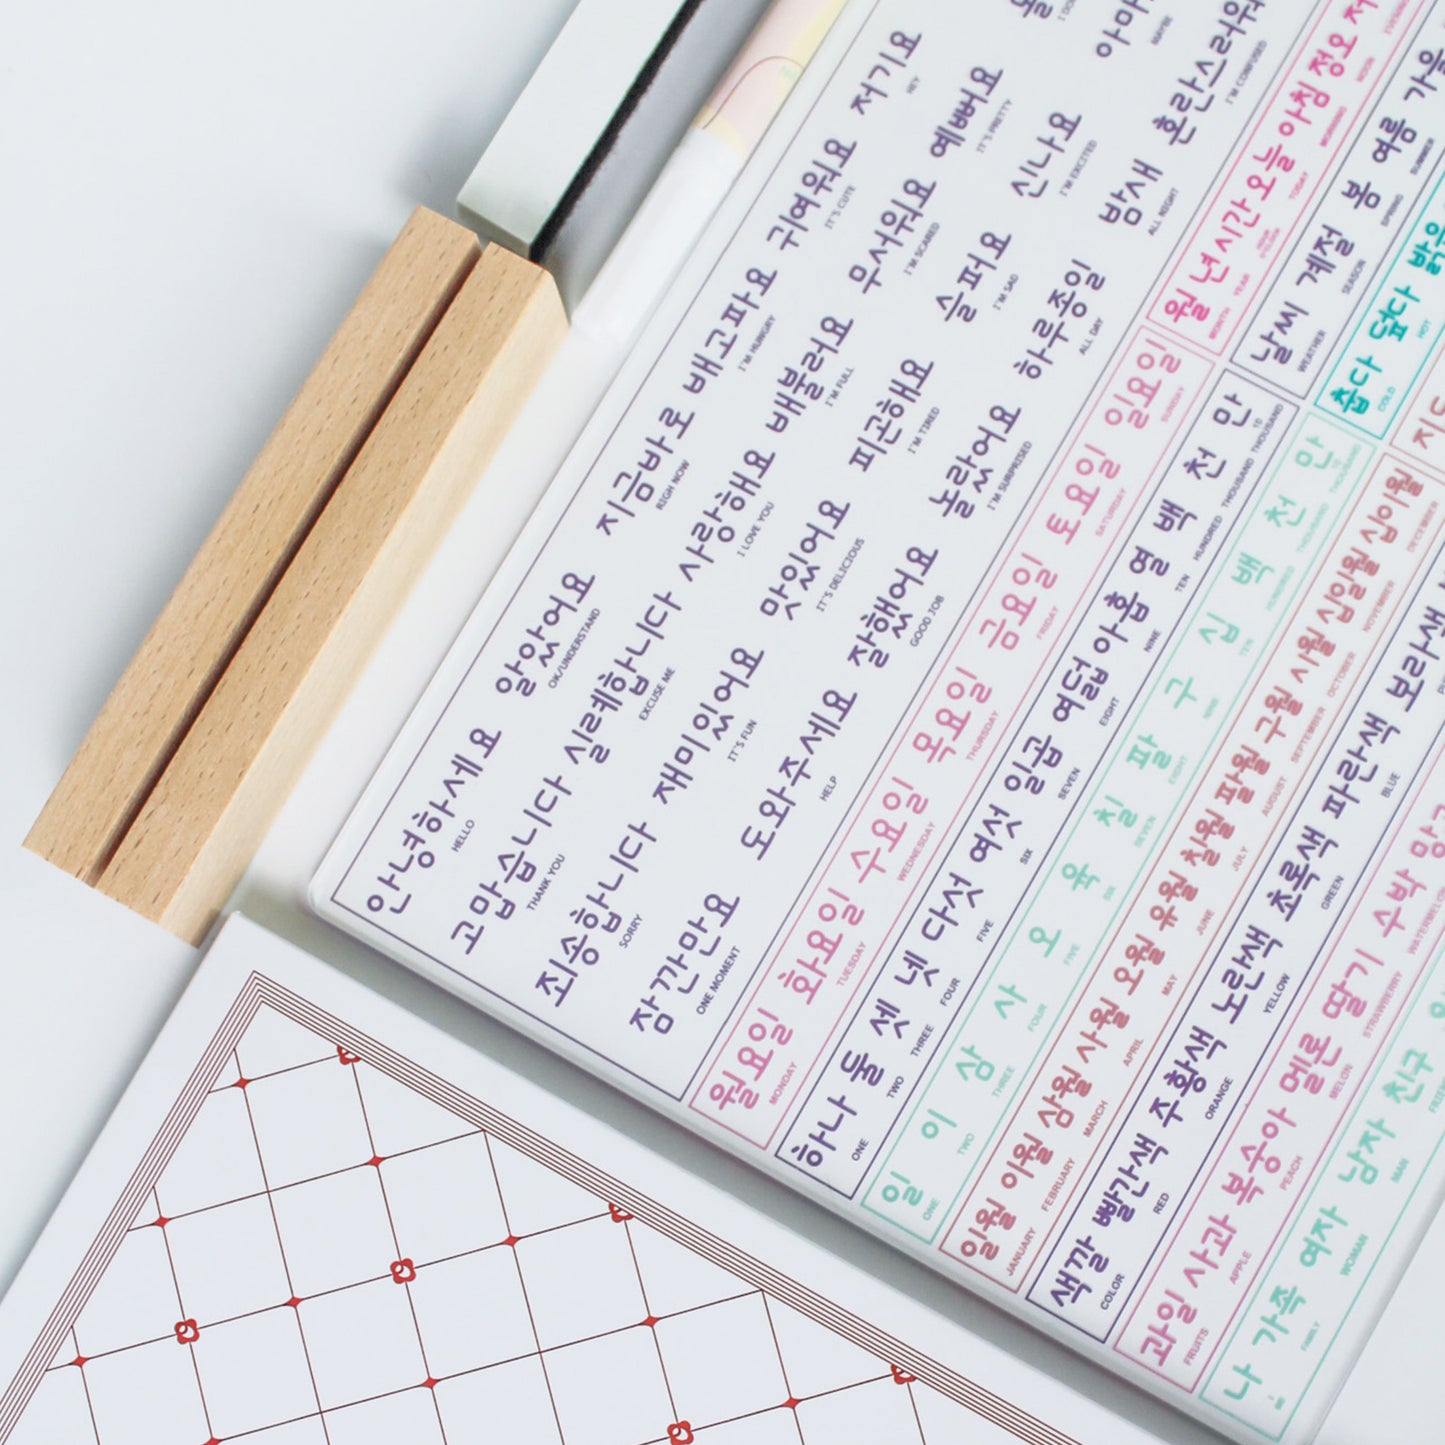 안녕하세요 알았어요 지금바로 배고파요 귀여워요 저기요
HELLO OK/UNDERSTAND RIGH NOW I'M HUNGRY IT'S CUTE HEY
고맙습니다 실례합니다 사랑해요 배불러요 무서워요 예뻐요
THANK YOU EXCUSE ME I LOVE YOU I'M FULL I'M SCARED IT'S PRETTY
죄송합니다 재미있어요 맛있어요 피곤해요 슬퍼요 신나요 아마
SORRY IT'S FUN IT'S DELICIOUS I'M TIRED I'M SAD I'M EXCITED MAYBE
잠간만요 도와주세요 잘했어요 놀랐어요 하루종일 밤새 혼란스러워
ONE MOMENT HELP GOOD JOB I'M SURPRISED ALL DAY ALL NIGHT I'M CONFUSED
월요일 화요일 수요일 목요일 금요일 토요일 일요일
MONDAY TUESDAY WEDNESDAY THURSDAY FRIDAY SATURDAY SUNDAY
월 년 시간 오늘 아침 정오
MONTH YEAR TODAY MORNING NOON
하나 둘 셋 넷 다섯 여섯 일곱 여덟 아홉 열 백 천 만
ONE TWO THREE FOUR FIVE SIX SEVEN EIGHT NINE TEN HUNDRED THOUSAND 10 THOUSAND
날씨 계절 봄 여름 가을
WEATHER SEASON SPRING SUMMER
일 이 삼 사 오 육 칠 팔 구 십 백 천 만
ONE TWO THREE FOUR FIVE SIX SEVEN EIGHT NINE TEN HUNDRED THOUSAND 10 THOUSAND
춥다 덥다
COLD HOT
일월 이월 삼월 사월 오월 유월 칠월 팔월 구월 시월 십일월 십이월
JANUARY FEBRUARY MARCH APRIL MAY JUNE JULY AUGUST SEPTEMBER OCTOBER NOVEMBER DECEMBER
색깔 빨간색 주황색 노란색 초록색 파란색 보라색
COLOR RED ORANGE YELLOW GREEN BLUE
과일 사과 복숭아 멜론 딸기 수박
FRUITS APPLE PEACH MELON STRAWBERRY WATERMELON
나 가족 여자 남자 친구
FAMILY WOMAN MAN